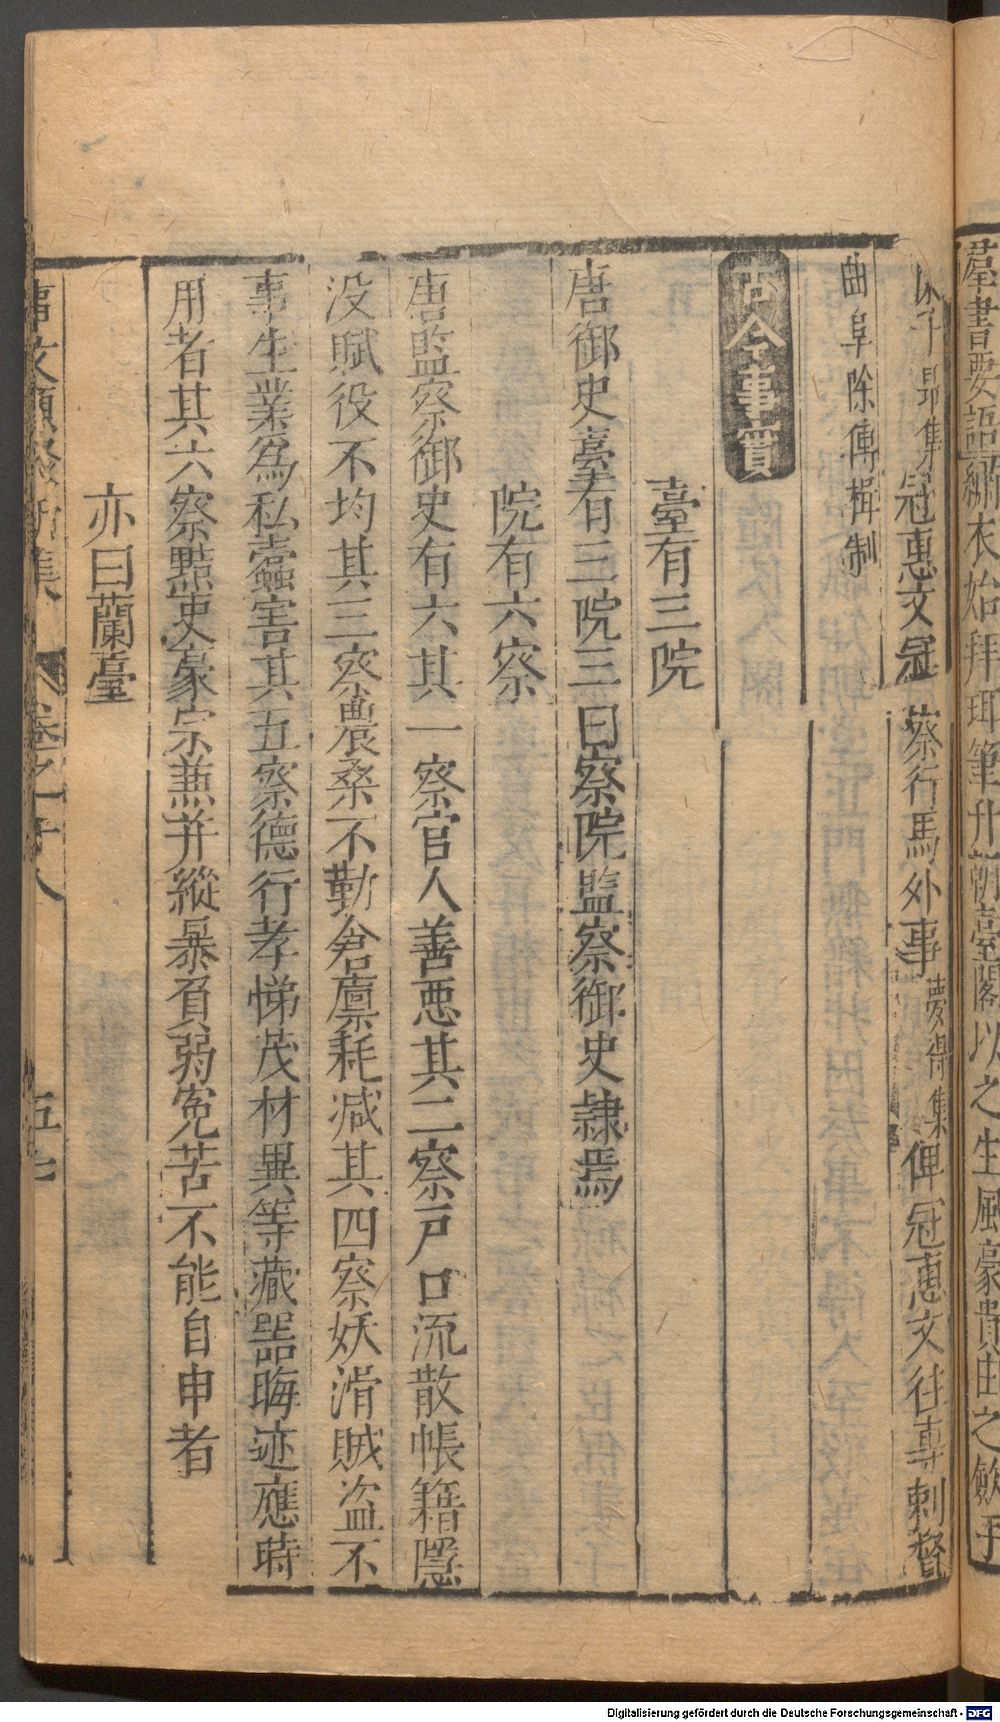 羣書要語繡衣始拜珥筆升朝臺閣以之生風豪貴由之歛手
陳子昻集冠惠文冠蔡行馬外事夢得集俾冠惠文往專刺督
曲阜除傅楫制
古今事實
臺有三院
唐御史臺有三院三曰察院監察御史隸焉
院有六察
唐監察御史有六其一察官人善惡其二察戶口流散帳籍隱
没賦役不均其三察農桑不勤倉廪耗减其四察妖滑賊盗不
事生業爲私蠧害其五察德行孝悌茂材異等藏器晦迹應時
用者其六察黠吏豪宗兼并縱暴貧弱寃苦不能自申者
亦曰蘭臺
事文類聚新集 卷之二十八 五七
Digitalisierung gefördert durch die Deutsche Forschungsgemeinschaft - DFG